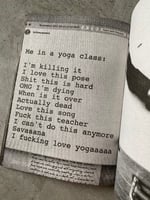 Me in a yoga class:
I'm killing it
I love this pose
Shit this is hard
OMG I'm dying
When is it over
Actually dead
Love this song
Fuck this teacher
I can't do this anymore
Savasana
I fucking love yogaaaaa